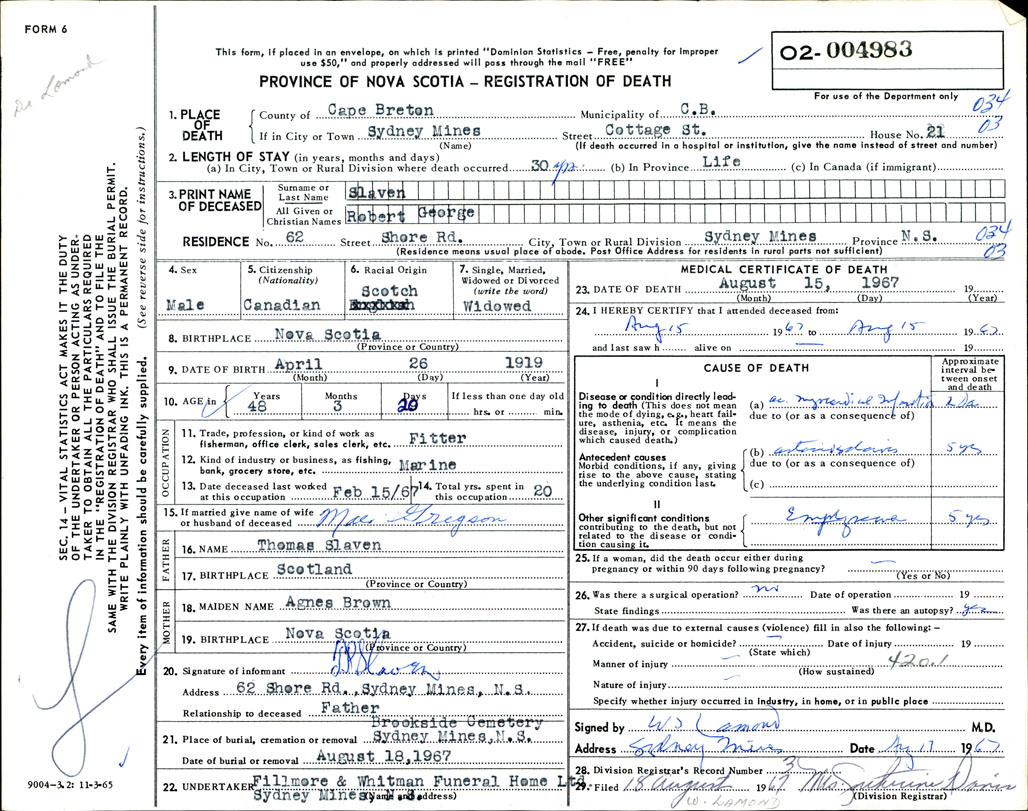 FORM 6
Dr Lamond
This form, if placed in an envelope, on which is printed "Dominion Statistics – Free, penalty for improper
use $50," and properly addressed will pass through the mail "FREE"
O2-004983
PROVINCE OF NOVA SCOTIA – REGISTRATION OF DEATH
For use of the Department only
034
03
1. PLACE OF DEATH
County of Cape Breton Municipality of C.B.
If in City or Town Sydney Mines Street Cottage St. House No. 21
(Name) (If death occurred in a hospital or institution, give the name instead of street and number)
2. LENGTH OF STAY (in years, months and days)
(a) In City, Town or Rural Division where death occurred 30 yrs (b) In Province Life (c) In Canada (if immigrant)
3. PRINT NAME OF DECEASED
Surname or Last Name Slaven
All Given or Christian Names Robert George
RESIDENCE No. 62 Street Shore Rd. City, Town or Rural Division Sydney Mines Province N.S. 034
(Residence means usual place of abode. Post Office Address for residents in rural parts not sufficient) 03
SEC. 14 – VITAL STATISTICS ACT MAKES IT THE DUTY
OF THE UNDERTAKER OR PERSON ACTING AS UNDER-
TAKER TO OBTAIN ALL THE PARTICULARS REQUIRED
IN THE "REGISTRATION OF DEATH" AND TO FILE THE
SAME WITH THE DIVISION REGISTRAR WHO SHALL ISSUE THE BURIAL PERMIT.
WRITE PLAINLY WITH UNFADING INK. THIS IS A PERMANENT RECORD.
Every item of information should be carefully supplied. (See reverse side for instructions.)
4. Sex
Male
5. Citizenship
(Nationality)
Canadian
6. Racial Origin
Scotch
7. Single, Married,
Widowed or Divorced
(write the word)
Widowed
8. BIRTHPLACE Nova Scotia
(Province or Country)
9. DATE OF BIRTH April 26 1919
(Month) (Day) (Year)
10. AGE in Years Months Days If less than one day old
48 3 20 hrs. or min.
OCCUPATION
11. Trade, profession, or kind of work as
fisherman, office clerk, sales clerk, etc. Fitter
12. Kind of industry or business, as fishing,
bank, grocery store, etc. Marine
13. Date deceased last worked
at this occupation Feb 15/67
14. Total yrs. spent in
this occupation 20
15. If married give name of wife
or husband of deceased Gregson
FATHER
16. NAME Thomas Slaven
17. BIRTHPLACE Scotland
(Province or Country)
MOTHER
18. MAIDEN NAME Agnes Brown
19. BIRTHPLACE Nova Scotia
(Province or Country)
20. Signature of informant Slaven
Address 62 Shore Rd., Sydney Mines, N.S.
Relationship to deceased Father
Brookside Cemetery
21. Place of burial, cremation or removal Sydney Mines, N.S.
Date of burial or removal August 18,1967
22. UNDERTAKER Fillmore & Whitman Funeral Home Ltd
Sydney Mines N.S.
(Name and address)
9004-3.2: 11-3-65
MEDICAL CERTIFICATE OF DEATH
23. DATE OF DEATH August 15, 1967 19
(Month) (Day) (Year)
24. I HEREBY CERTIFY that I attended deceased from:
Aug 15 1967 to Aug 15 1967
and last saw h alive on 19
CAUSE OF DEATH
Approximate
interval be-
tween onset
and death
I
Disease or condition directly lead-
ing to death (This does not mean
the mode of dying, e.g., heart fail-
ure, asthenia, etc. It means the
disease, injury, or complication
which caused death.)
(a) ac. myocardial Infarction
due to (or as a consequence of)
Antecedent causes
Morbid conditions, if any, giving
rise to the above cause, stating
the underlying condition last.
(b) 5 yrs
due to (or as a consequence of)
(c)
II
Other significant conditions
contributing to the death, but not
related to the disease or condi-
tion causing it.
5 yrs
25. If a woman, did the death occur either during
pregnancy or within 90 days following pregnancy?
(Yes or No)
26. Was there a surgical operation? no Date of operation 19
State findings Was there an autopsy? yes
27. If death was due to external causes (violence) fill in also the following: –
Accident, suicide or homicide? Date of injury 19
(State which)
Manner of injury 420.1
(How sustained)
Nature of injury
Specify whether injury occurred in industry, in home, or in public place
Signed by W S Lamond M.D.
Address Sydney Mines Date Aug 17 1967
28. Division Registrar's Record Number
29. Filed 18 August 1967 Mrs.
(Division Registrar)
W. LAMOND